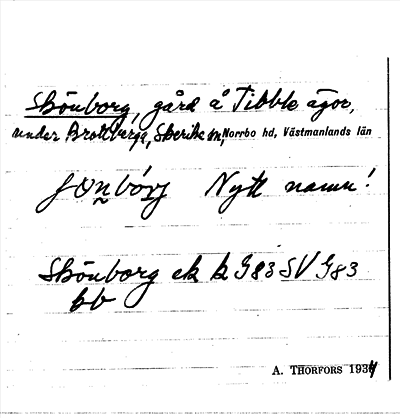 Skönborg, gård å Tibble ägor,
under Brottberga, Skerike sn, Norrbo hd, Västmanlands län
Nytt namn!
Skönborg ek k G83 SV G83
bb
A. THORFORS 1934